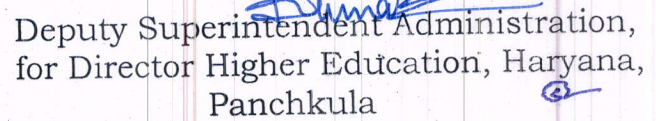 Deputy Superintendent Administration,
for Director Higher Education, Haryana,
Panchkula